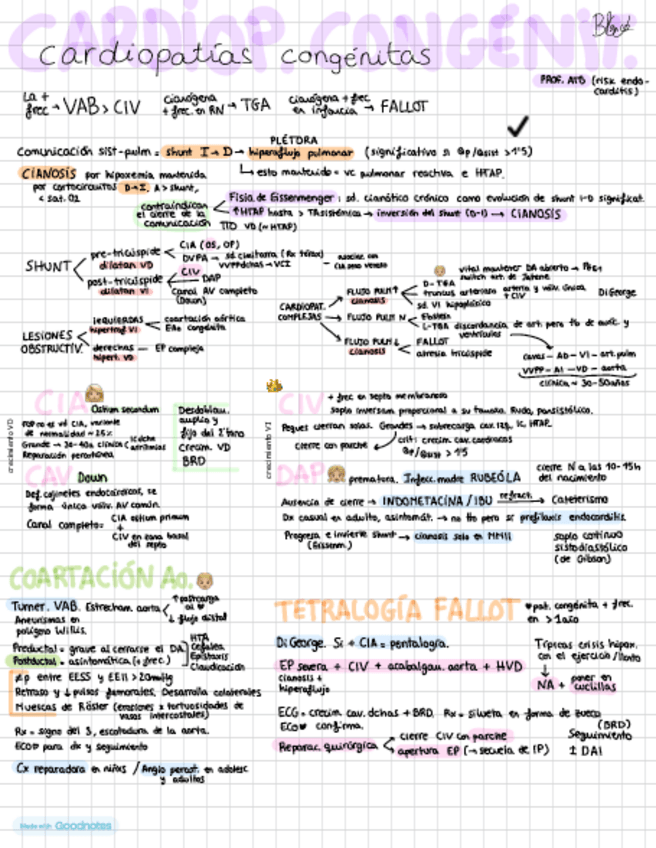 CARDIOP. CONGÉNIT.
cardiopatías congénitas
PROF. ATB (risk endo-
carditis)
La +
frec → VAB > CIV
Cianógena
+ frec. en RN → TGA
Cianógena + frec
en infancia → FALLOT
PLÉTORA
Comunicación sist-pulm = shunt I→D → hiperaflujo pulmonar (significativo si Qp/Qsist > 1'5)
↳ esto mantenido = vc pulmonar reactiva e HTAP.
CIANOSIS por hipoxemia mantenida
por cortocircuitos D→I. A > shunt,
< sat. O2
contraindican
el cierre de la
comunicación
Fisio de Eissenmenger: sd. cianótico crónico como evolución de shunt I-D significat.
↑HTAP hasta > TAsistémica → inversión del shunt (D-I) → CIANOSIS
TTO VD (≈ HTAP)
SHUNT
pre-tricúspide
dilatan VD
CIA (OS, OP)
DVPA → sd cimitarra (Rx tórax)
VVPPdchas → VCI
asociar con
CIA seno venoso
post-tricúspide
dilatan VI
CIV
DAP
Canal AV completo
(Down)
LESIONES
OBSTRUCTIV.
izquierdas
hipertrof VI
coartación aórtica
EAo congénita
derechas
hipert. VD
EP compleja
CARDIOPAT.
COMPLEJAS
FLUJO PULM ↑
cianosis
vital mantener DA abierto → PGE1
switch art. de Jatene
D-TGA
truncus arterioso arteria y válv. única
+ CIV
DiGeorge
sd. VI hipoplásico
FLUJO PULM N
Ebstein
L-TGA discordancia de art. pero tb de auríc. y
ventrículos
FLUJO PULM ↓
cianosis
FALLOT
atresia tricúspide
cavas - AD - VI - art. pulm
VVPP - AI - VD - aorta
clínica ≈ 30-50años
CIA
Ostium secundum
FOP no es vd CIA, variante
de normalidad ≈ 25%
Grande → 30-40a clínica
IC dcha
arritmias
Reparación percutánea
crecimiento VD
Desdoblam.
amplio y
fijo del 2ºtono
Crecim. VD
BRD
CIV
crecimiento VI
+ frec en septo membranoso
soplo inversam. proporcional a su tamaño. Rudo, pansistólico.
Peques cierran solas. Grandes → sobrecarga cav. izq, IC, HTAP.
cierre con parche
crit: crecim. cav. cardiacas
Qp/Qsist > 1'5
CAV
Down
Def. cojinetes endocárdicos, se
forma única válv. AV común.
Canal completo =
CIA ostium primum
+
CIV en zona basal
del septo
DAP
prematura, Infecc. madre RUBEÓLA
cierre N a las 10-15h
del nacimiento
Ausencia de cierre → INDOMETACINA / IBU refract. → Cateterismo
Dx casual en adulto, asintomát. → no tto pero sí profilaxis endocarditis
Progresa e invierte shunt → cianosis solo en MMII
(Eissenm.)
soplo continuo
sistodiastólico
(de Gibson)
COARTACIÓN Ao.
Turner. VAB. Estrecham. aorta
↑ postcarga
al ♥
↓ flujo distal
Aneurismas en
polígono Willis.
Preductal = grave al cerrarse el DA
Postductal = asintomática (+ frec.)
HTA
Cefalea
Epistaxis
Claudicación
≠p entre EESS y EEII > 20mmHg
Retraso y ↓ pulsos femorales. Desarrolla colaterales
Muescas de Röster (erosiones x tortuosidades de
vasos intercostales)
Rx = signo del 3, escotadura de la aorta.
ECO♥ para dx y seguimiento
Cx reparadora en niñxs / Angio percut. en adolesc
y adultos
TETRALOGÍA FALLOT
♥pat. congénita + frec.
en > 1año
DiGeorge. Si + CIA = pentalogía.
EP severa + CIV + acabalgam. aorta + HVD
cianosis +
hipoaflujo
Típicas crisis hipox.
con el ejercicio / llanto
↓
NA + poner en
cuclillas
ECG = crecim cav. dchas + BRD. Rx = silueta en forma de zueco
ECO♥ confirma.
Reparac. quirúrgica
cierre CIV con parche
apertura EP (→ secuela de IP)
(BRD)
Seguimiento
± DAI
Made with Goodnotes